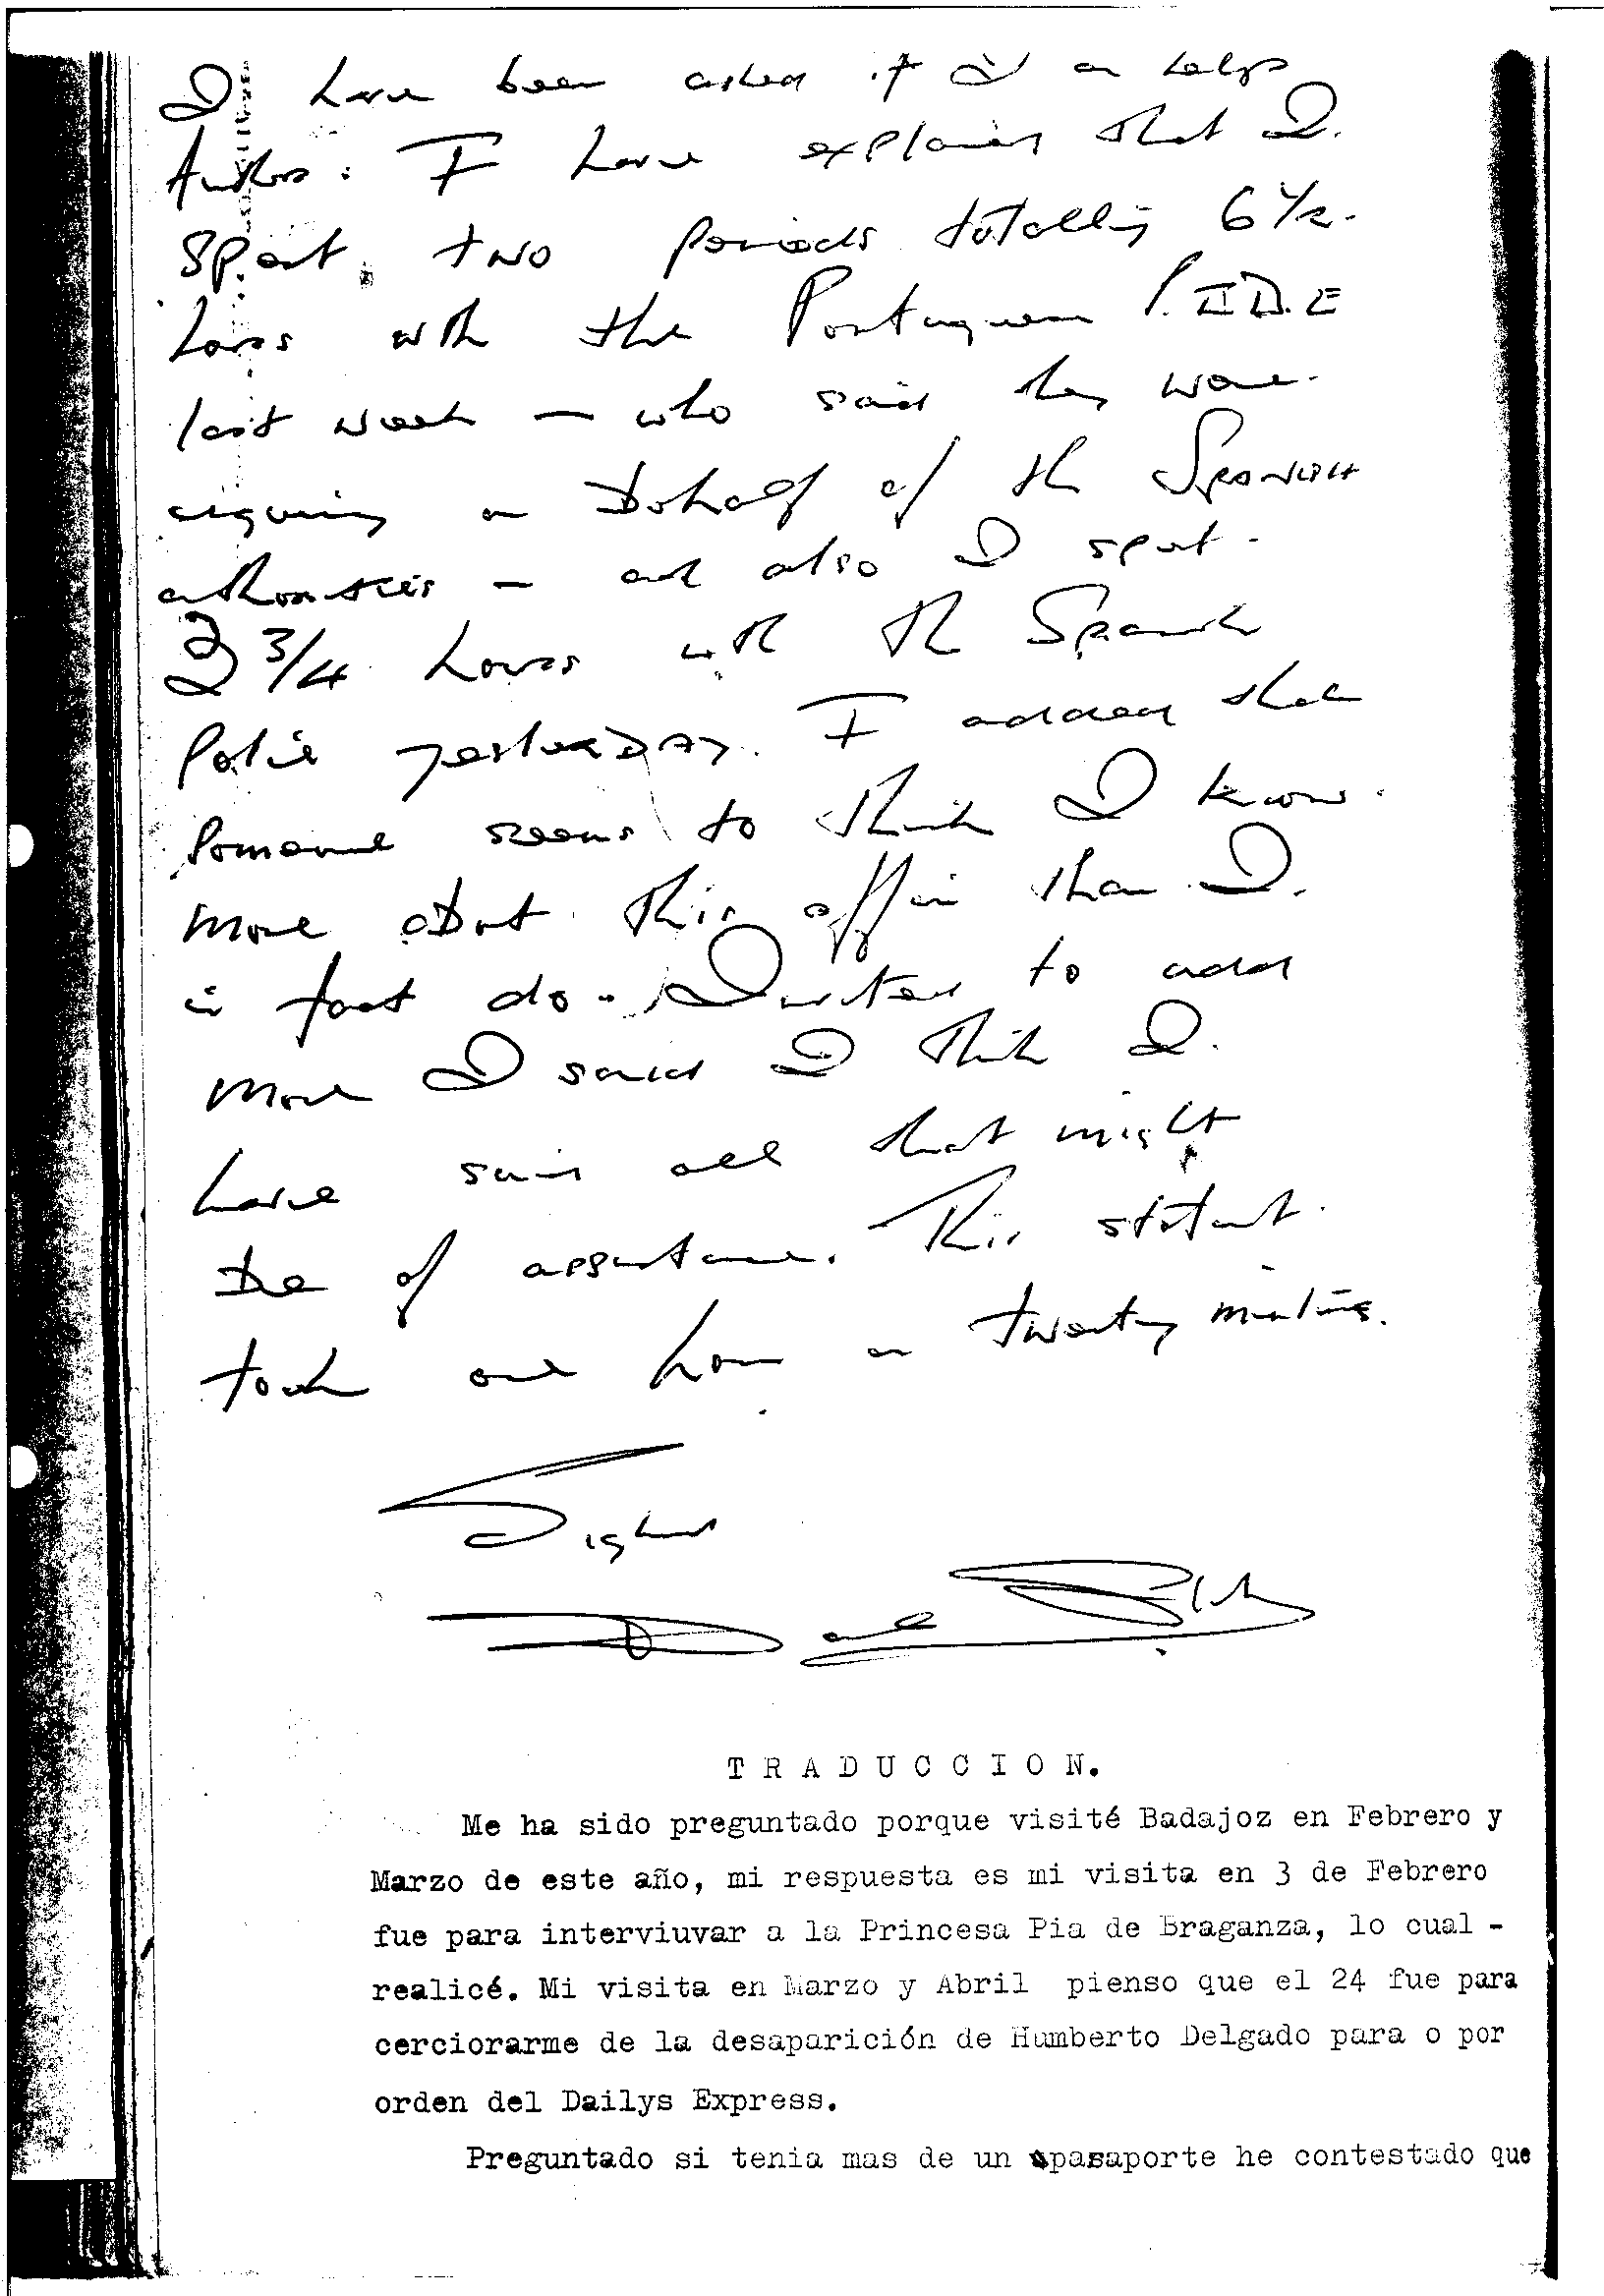 I have been asked if I can help
further. I have explained that I
spent two periods totalling 6 1/2
hours with the Portuguese P.I.D.E
last week — who said they were
enquiring on behalf of the Spanish
authorities — and also I spent
2 3/4 hours with the Spanish
Police yesterday. I added that
someone seems to think I know
more about this affair than I
in fact do. Invited to add
more I said I think I
have said all that might
be of assistance. This statement
took one hour and twenty minutes.
Signed
TRADUCCION.
Me ha sido preguntado porque visité Badajoz en Febrero y
Marzo de este año, mi respuesta es mi visita en 3 de Febrero
fue para interviuvar a la Princesa Pia de Braganza, lo cual -
realicé. Mi visita en Marzo y Abril pienso que el 24 fue para
cerciorarme de la desaparición de Humberto Delgado para o por
orden del Dailys Express.
Preguntado si tenia mas de un pasaporte he contestado que